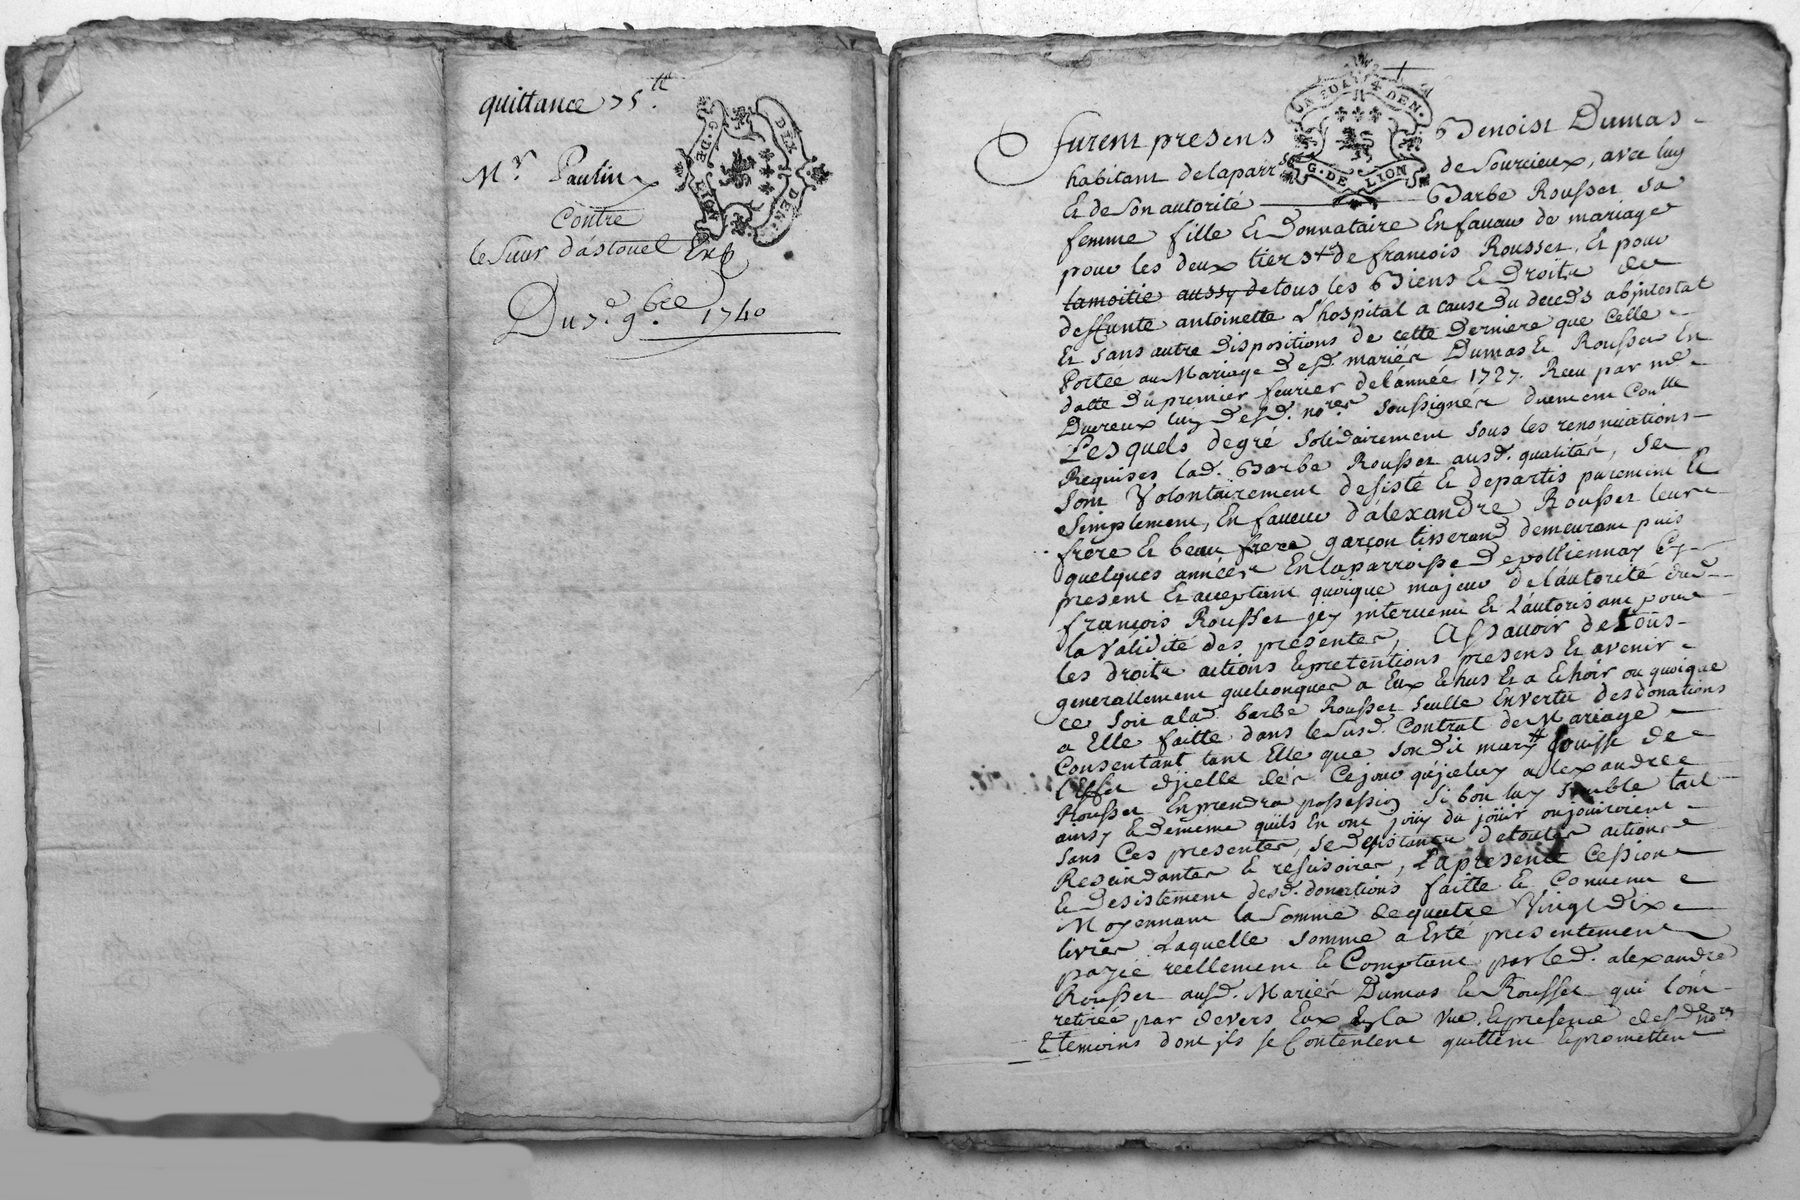 quittance 75.tt
Mr. Paulin
Contre
le Sieur d'astouel Exp
Du 7e. 9bre 1740
G. DE LION
DEN.
furent presens Benoist Dumas
habitant de la parrsse de Sourcieux, avec luy
Et de Son autorité Barbe Rousset sa
femme fille Et Donnataire En faveur de mariage
pour les deux tiers de françois Rousset, Et pour
la moitie aussy de tous les Biens Et Droits de
deffunte antoinette L'hospital a cause du deceds abjntestat
Et sans autre Dispositions de cette Derniere que Celle
Portée au Mariage desd. mariés Dumas Et Rousset En
datte du premier fevrier de l'année 1727. Receu par me
Ducreux luy desd. nores soussignés duement Conllé
Lesquels de gré Solidairement sous les renonciations
Requises lad. Barbe Rousset ausd. qualités, se
sont Volontairement desisté Et departis purement Et
Simplement, En faveur d'alexandre Rousset leur
frere Et beau frere garçon tisserand demeurant puis
quelques années En la parroisse de polliennay Cy
present Et acceptant quoique majeur de l'autorité dud.
françois Rousset jcy jntervenu Et L'autorisant pour
la Validité des presentes, Assavoir de tous
les droits actions Et pretentions presens Et avenir
generallement quelconques a Eux Echus Et a Echoir ou quoique
ce soit a lad. barbe Rousset seulle En vertu des donations
a Elle faitte dans le Susd. Contrat de Mariage
Consentant tant Elle que son dit mary jouisse de
l'Effet d'jcelle des Ce jour qu'jceluy alexandre
Rousset En prendra possession si bon luy semble tout
ainsy Et de meme qu'ils En ont jouy du jouir ou jouiroient
sans Ces presentes, se desistants de toutes actions
Rescindantes Et resisoires, La presente Cession
Et desistement desd. donations faitte Et Convenu
Moyennant la Somme de quatre Vingt dix
livres Laquelle somme a Esté presentement
payée reellement Et Comptant par led. alexandre
Rousset ausd. Mariés Dumas Et Rousset qui l'ont
retirée par devers Eux En la Vue, Et presence desd. nores
Et temoins dont jls se Contentent quittent Et promettent